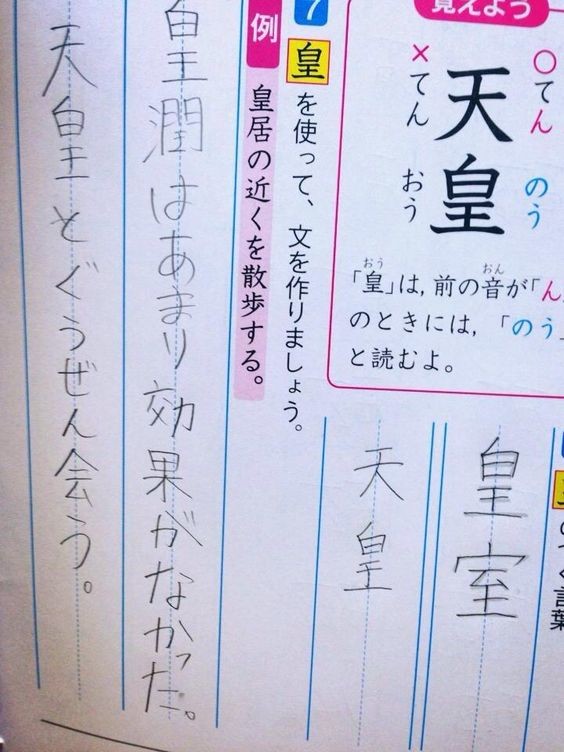 覚えよう
○てんのう
天皇
×てんおう
「皇」は、前の音が「ん
おう
おん
のときには、「のう」
と読むよ。
のつく言葉
皇室
天皇
7
皇を使って、文を作りましょう。
例
皇居の近くを散歩する。
皇潤はあまり効果がなかった。
天皇とぐうぜん会う。